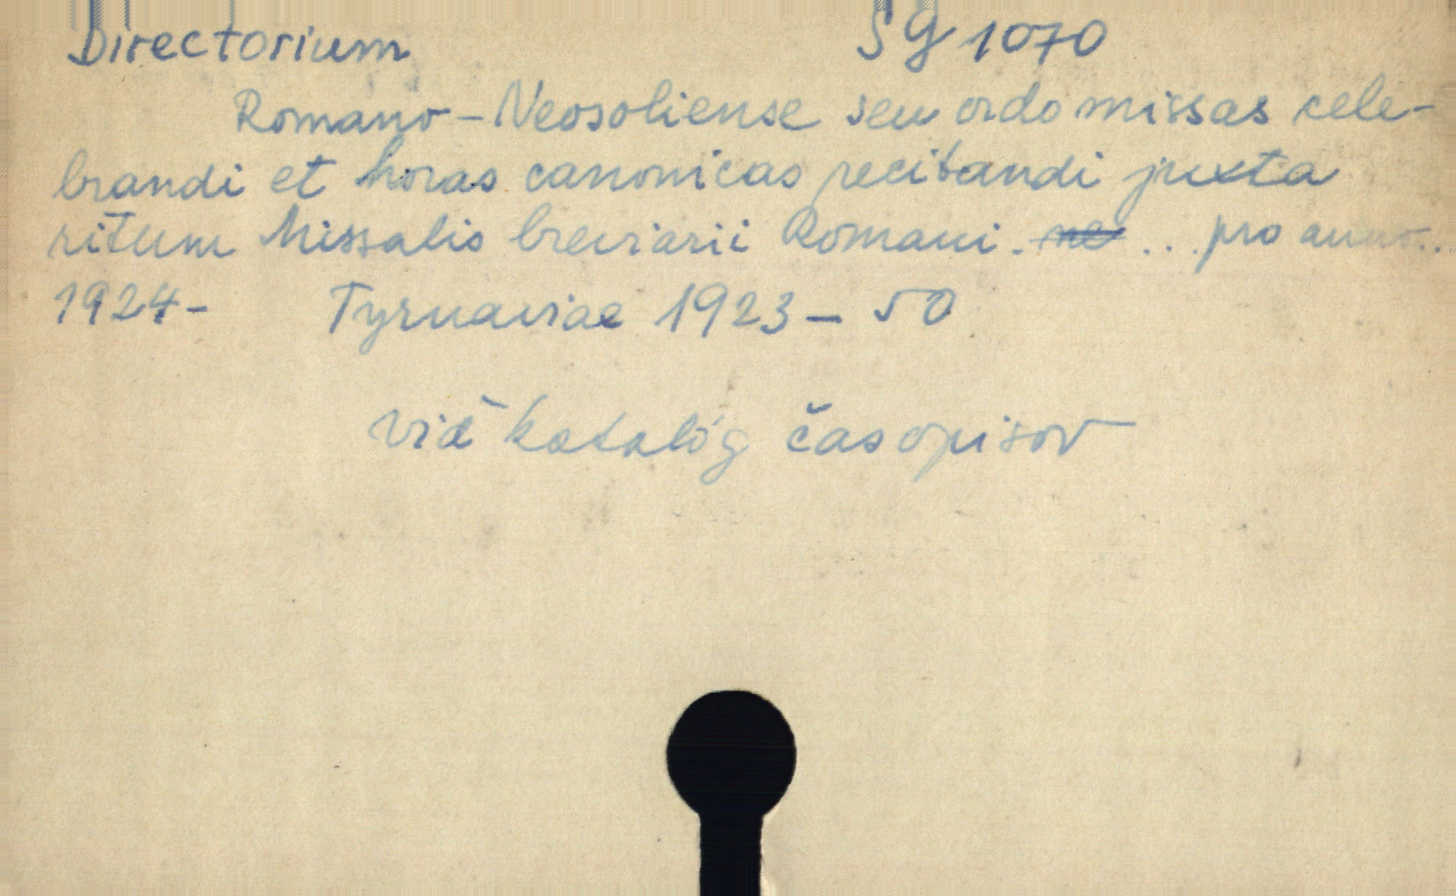 Directorium SG 1070
Romano-Neosoliense seu ordo missas cele-
brandi et horas canonicas recitandi juxta
ritum Missalis breviarii Romani. ... pro anno..
1924- Tyrnaviae 1923-50
viď katalóg časopisov